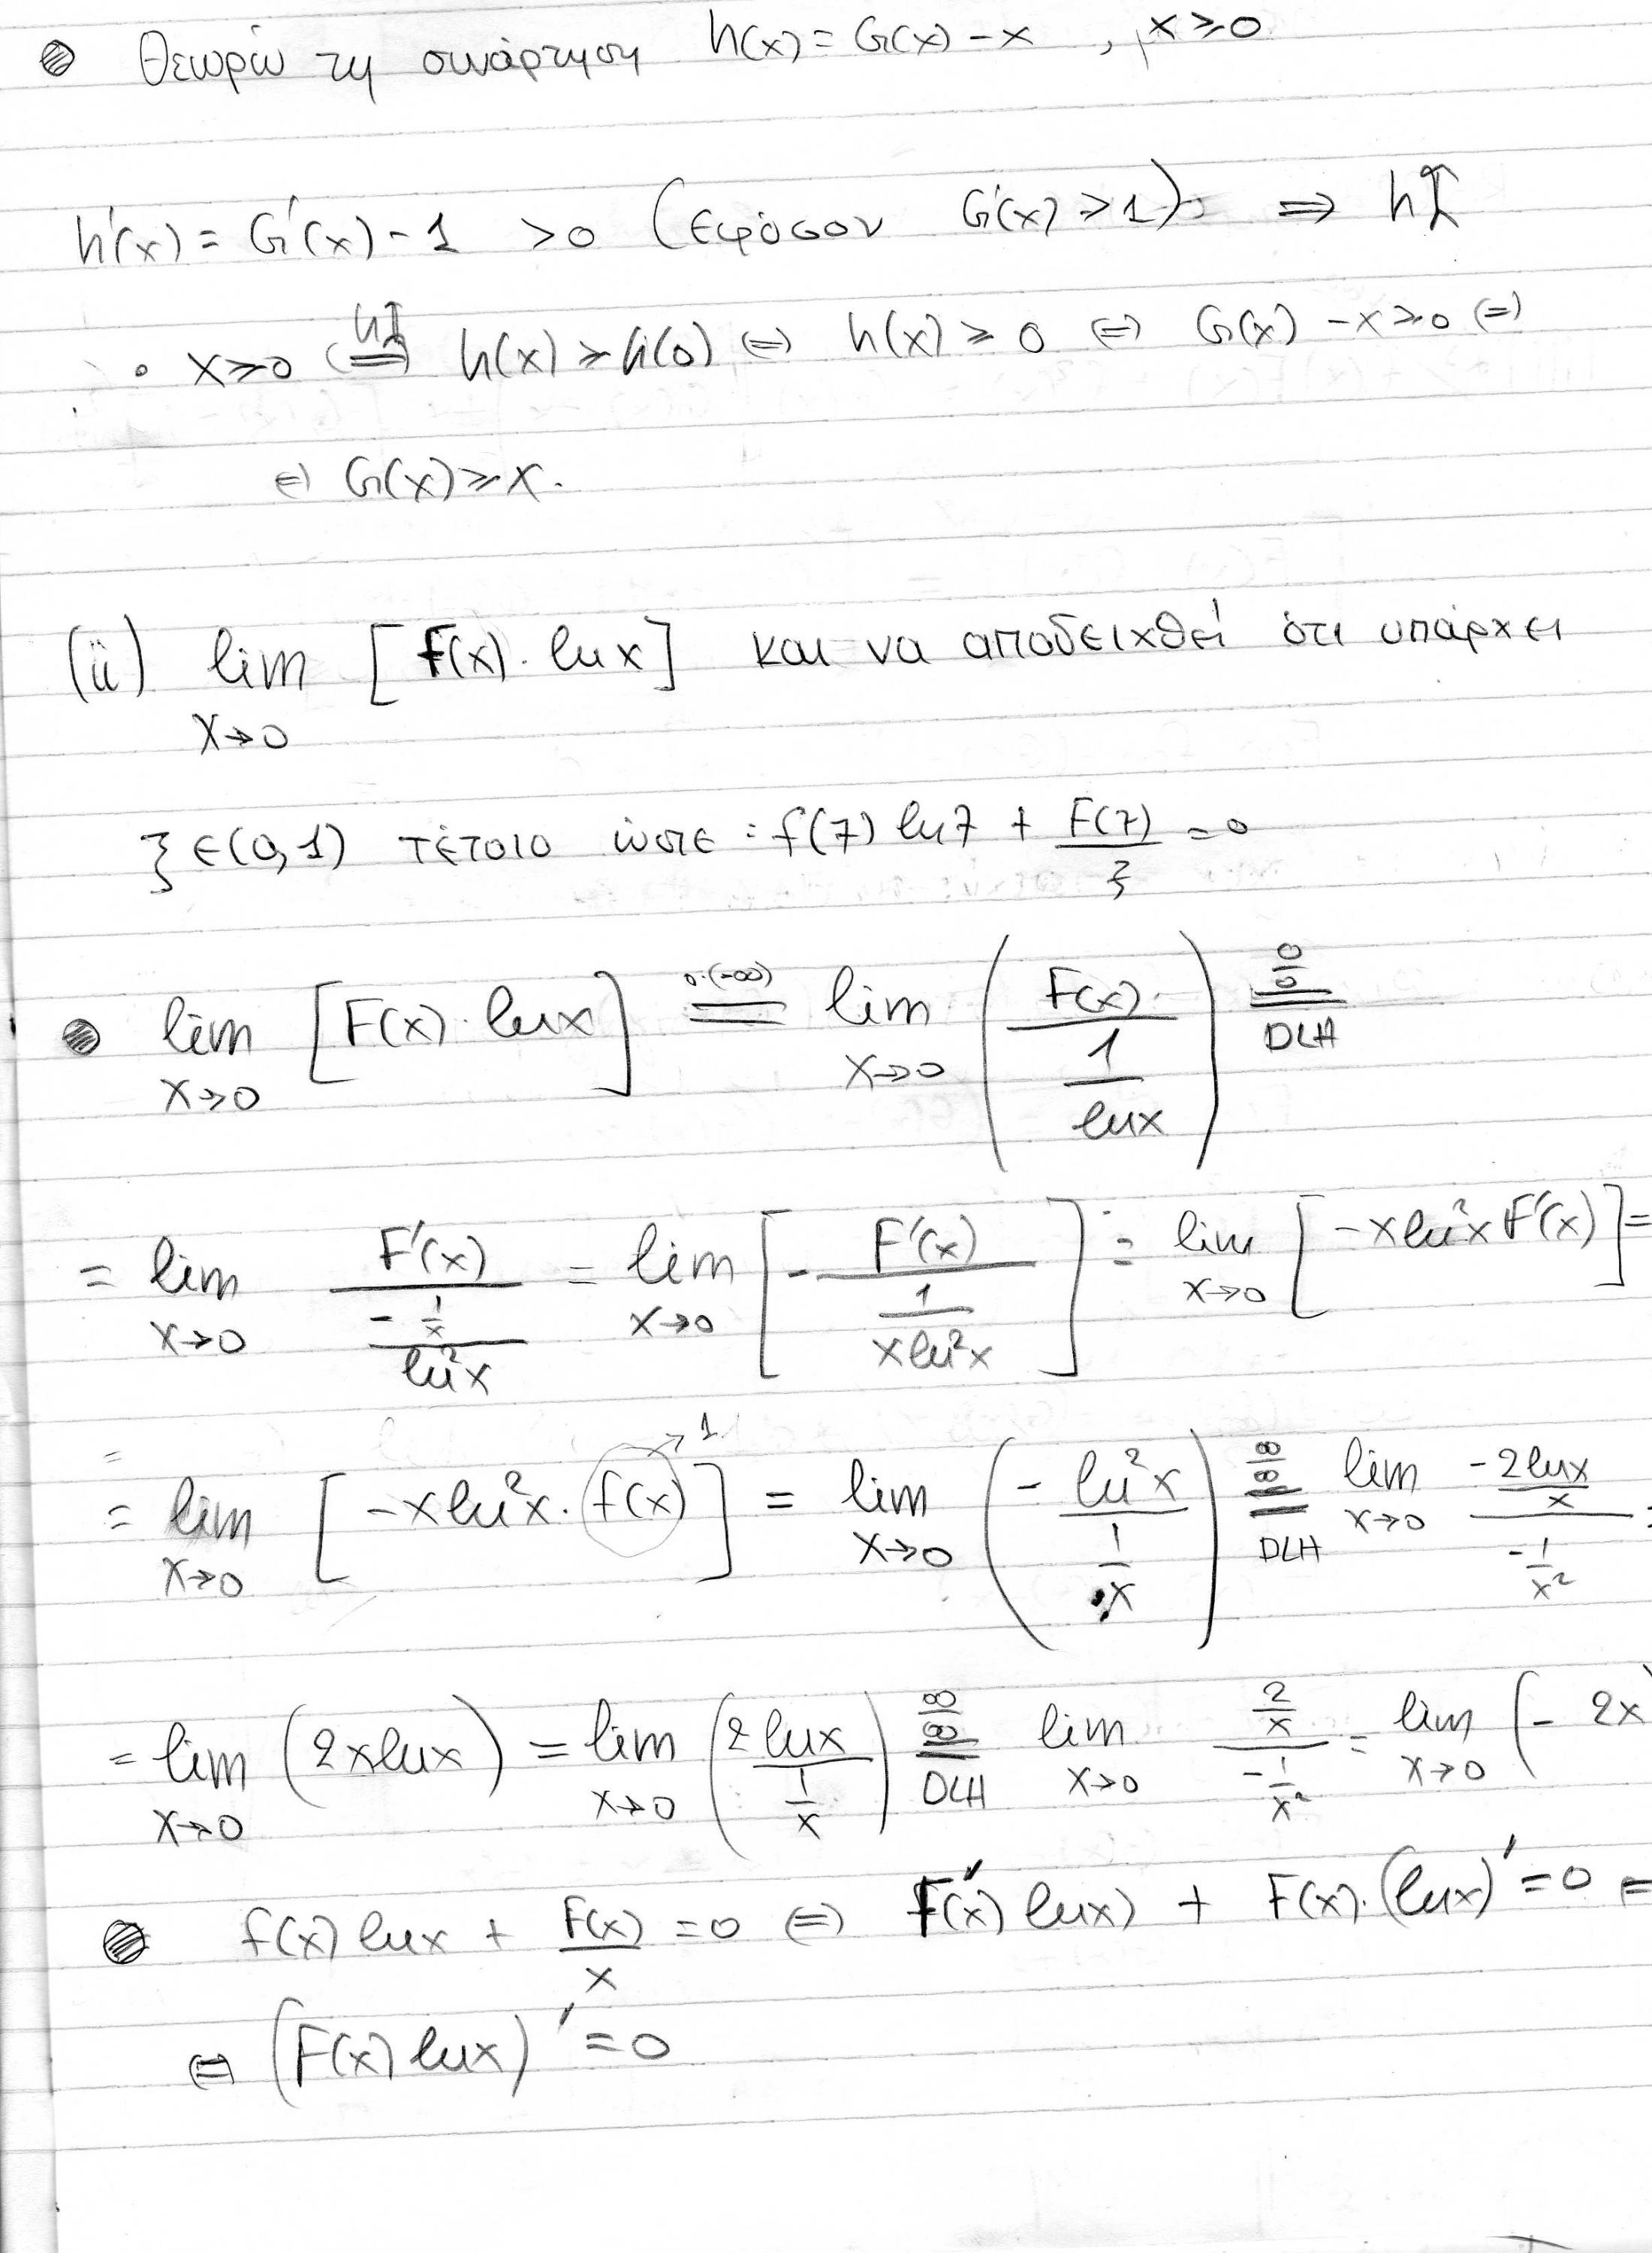 Θεωρώ τη συνάρτηση h(x) = G(x) - x , x ≥ 0
h'(x) = G'(x) - 1 > 0 (εφόσον G'(x) > 1) ⇒ h↑
• x ≥ 0 ⇔ (h↑) h(x) ≥ h(0) ⇔ h(x) ≥ 0 ⇔ G(x) - x ≥ 0 ⇔
⇔ G(x) ≥ x.
(ii) lim x→0 [F(x) · lnx] και να αποδειχθεί ότι υπάρχει
ξ ∈ (0,1) τέτοιο ώστε : f(ξ) lnξ + F(ξ)/ξ = 0
lim x→0 [F(x) · lnx] = (0·(-∞)) lim x→0 (F(x) / (1/lnx)) = (0/0, DLH)
= lim x→0 F'(x) / (-(1/x)/ln²x) = lim x→0 [-F'(x) / (1/(x ln²x))] = lim x→0 [-x ln²x F'(x)] =
= lim x→0 [-x ln²x · f(x) → 1] = lim x→0 (-ln²x / (1/x)) = (∞/∞, DLH) lim x→0 (-2lnx/x) / (-1/x²) =
= lim x→0 (2x lnx) = lim x→0 (2lnx / (1/x)) = (∞/∞, DLH) lim x→0 (2/x) / (-1/x²) = lim x→0 (- 2x)
f(x) lnx + F(x)/x = 0 ⇔ F'(x) lnx) + F(x) · (lnx)' = 0 =
⇔ (F(x) lnx)' = 0